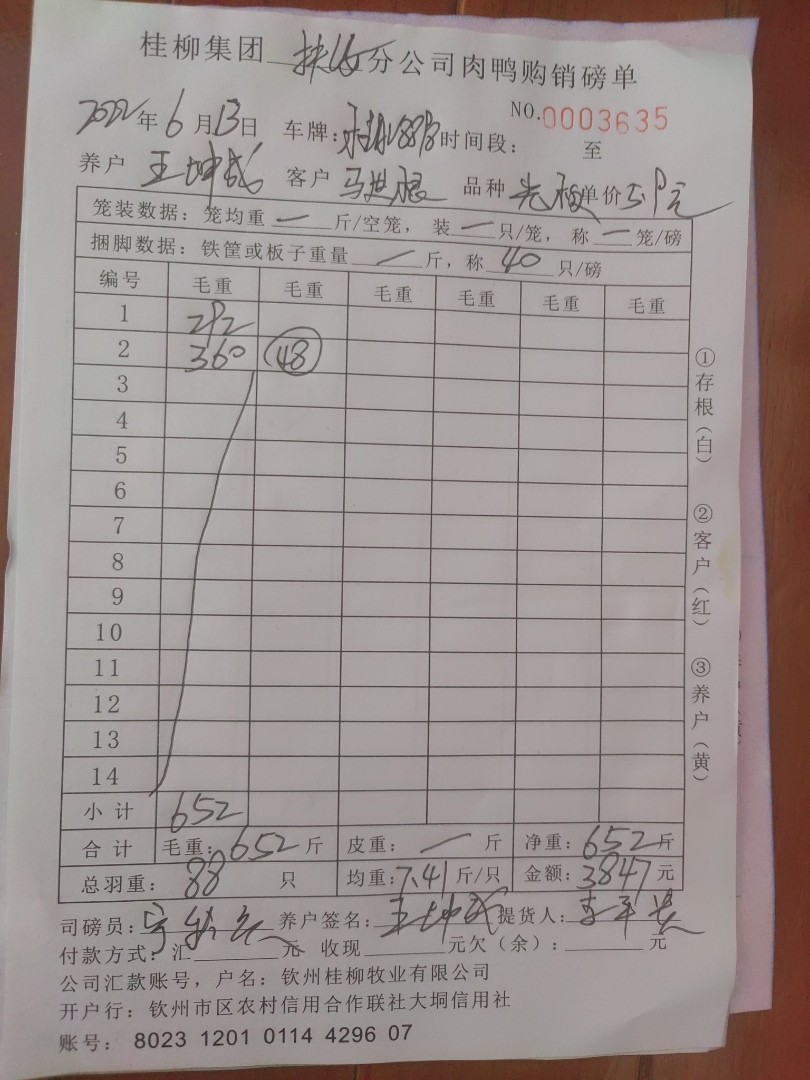 桂柳集团 扶牧 分公司肉鸭购销磅单
NO.0003635
2022年6月13日 车牌: 时间段: 至
养户 王坤成 客户 马世根 品种 单价5.9元
笼装数据：笼均重 一 斤/空笼，装 一 只/笼，称 一 笼/磅
捆脚数据：铁筐或板子重量 一 斤，称 40 只/磅
编号 毛重 毛重 毛重 毛重 毛重 毛重
1 292
2 360 48
3
4
5
6
7
8
9
10
11
12
13
14
小计 652
合计 毛重：652斤 皮重：一 斤 净重：652斤
总羽重：88 只 均重：7.41斤/只 金额：3847元
司磅员： 养户签名：王坤成 提货人：
付款方式：汇 元 收现 元欠（余）： 元
公司汇款账号，户名：钦州桂柳牧业有限公司
开户行：钦州市区农村信用合作联社大垌信用社
账号：8023 1201 0114 4296 07
①存根（白） ②客户（红） ③养户（黄）